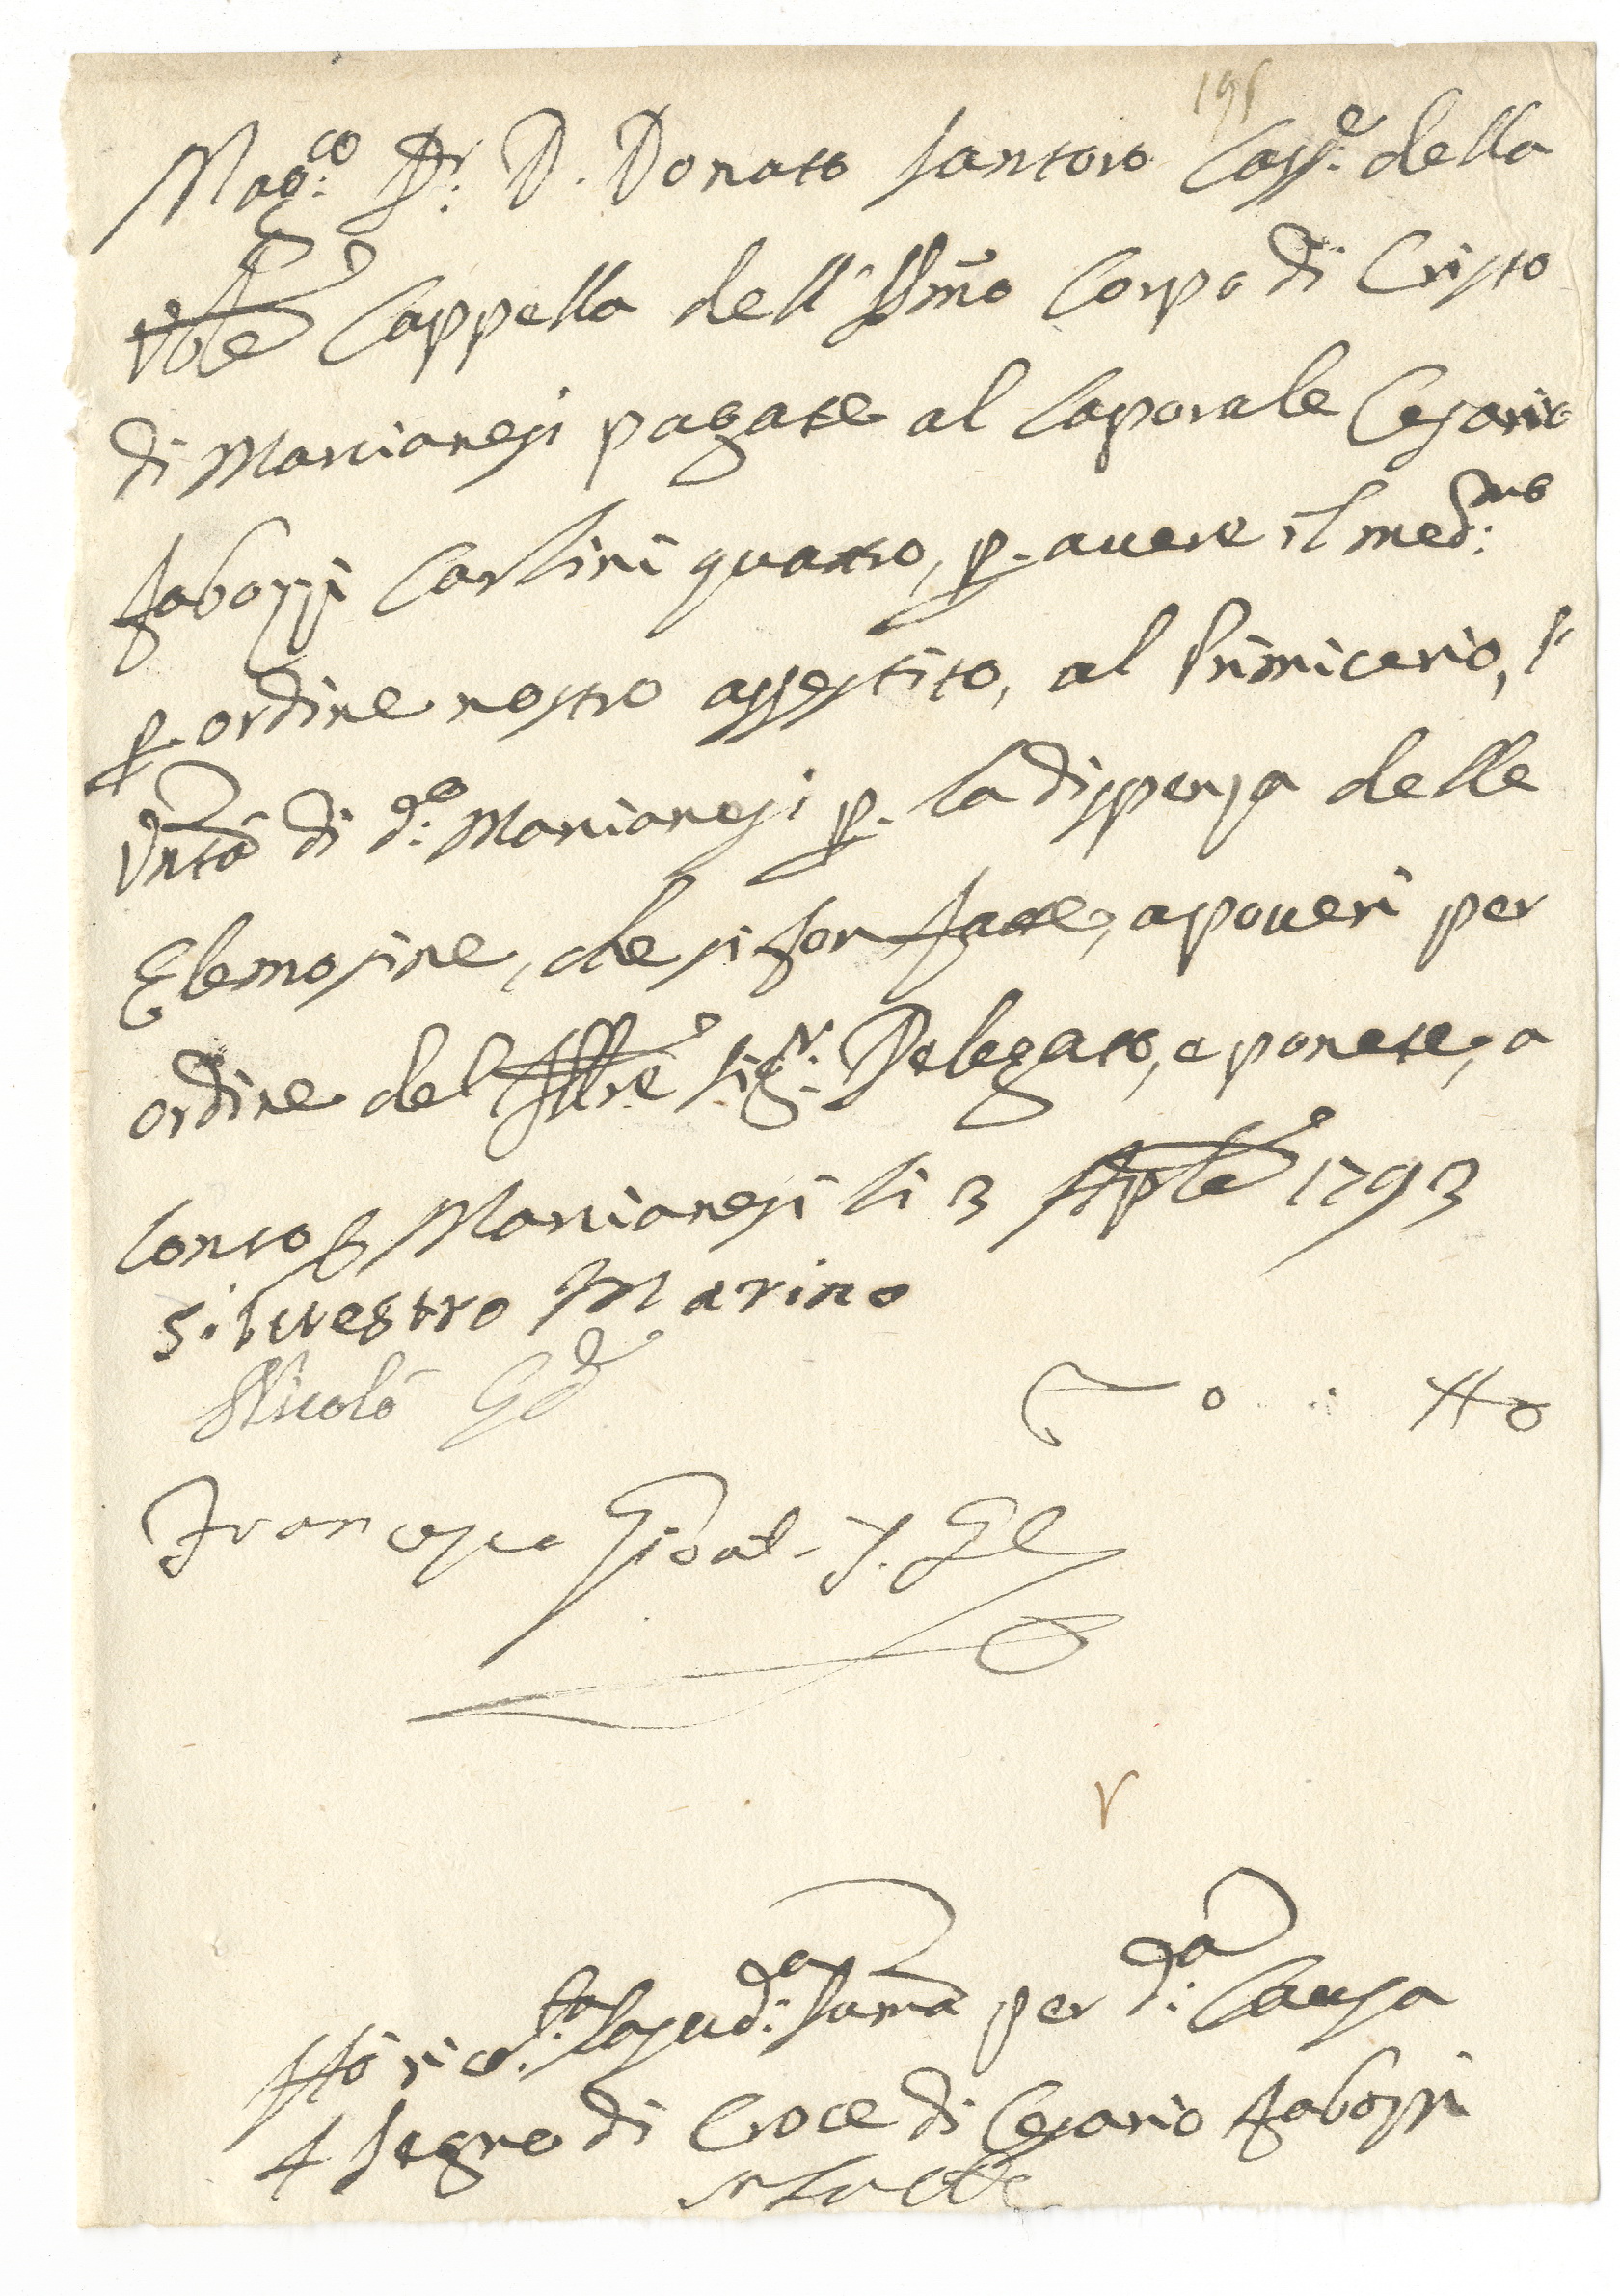 195
Mag.co Dr. D. Donato Santoro Cass.e della
Vble Cappella dell' SSmo Corpo di Cristo
di Marcianesi pagate al Caporale Cesario
Iabozzi Carlini quattro, p. avere il med.mo
p. ordine nostro assestito, al Primicerio, l'
Vntà di d.o Marcianesi p. la dispenza delle
Elemosine, che si son fatte, a poveri per
ordine del Illre Sig.r Delegato, e ponete, a
Conto, Marcianesi li 3 Aple 1793
Silvestro Marino
Nicolò
o : 40
Francesco
Hò ricev.ta la sud.a Suma per d.a Causa
+ Segno di Croce di Cesario Iabozzi